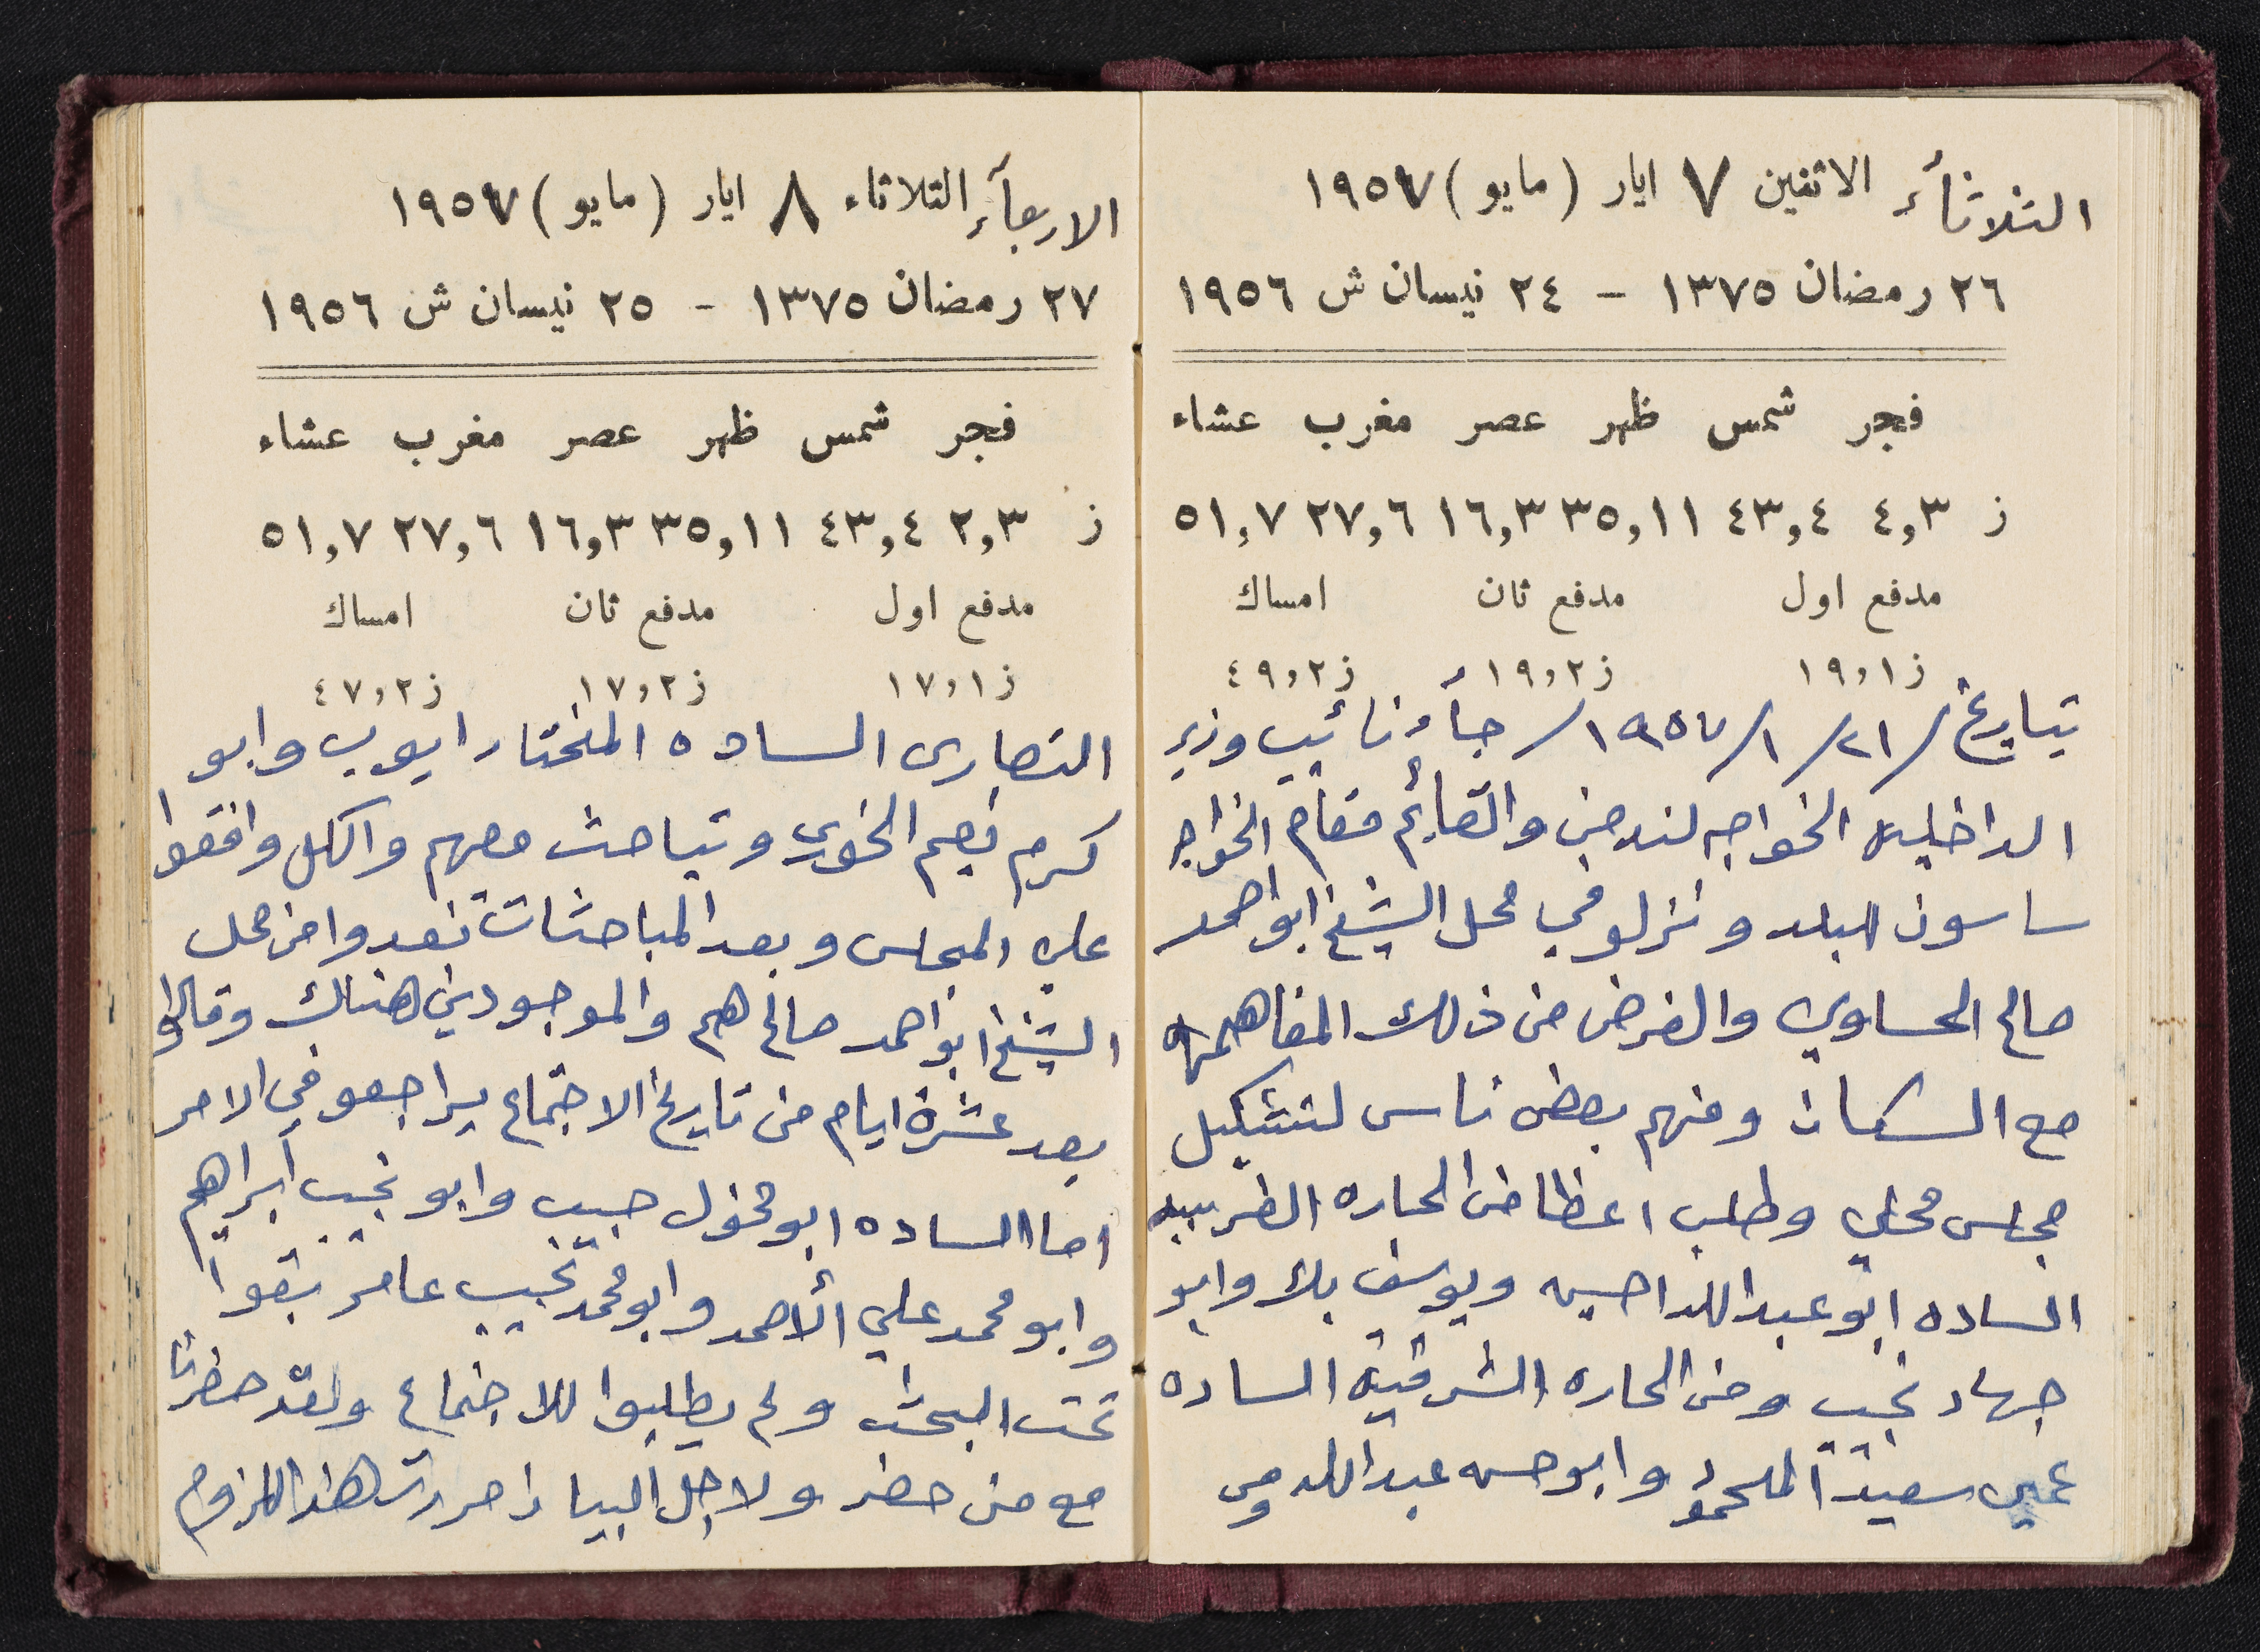 الثلاثأء الاثنين ٧ ايار (مايو) ١٩٥٧
٢٦ رمضان ١٣٧٥ - ٢٤ نيسان ش ١٩٥٦
فجر شمس ظهر عصر مغرب عشاء
ز ٤,٣ ٤٣,٤ ٣٥,١١ ١٦,٣ ٢٧,٦ ٥١,٧
مدفع اول مدفع ثان امساك
ز ١٩,١ ز ١٩,٢ ز ٤٩,٢
بتاريخ /٢١/ ١/ ١٩٥٧/ جأء نائب وزير
الداخليه الخواجه لندمن والقايم مقام الخواجه
ساسون البلد ونزلو في محل الشيخ ابو احمد
صالح الحساوي والغرض من ذلك المفاهمه
مع السكان ومنهم بعض ناس لتشكيل
مجلس محلي وطلب اعظا من الحاره الغربيه
الساده ابو عبدالله احسين ويوسف بك وابو
جهاد نجيب ومن الحاره الشرقيه الساده
عمي سعيد الملحم وابو حسن عبدالله ومن
الاربعأء الثلاثاء ٨ ايار (مايو) ١٩٥٧
٢٧ رمضان ١٣٧٥ - ٢٥ نيسان ش ١٩٥٦
فجر شمس ظهر عصر مغرب عشاء
ز ٢,٣ ٤٣,٤ ٣٥,١١ ١٦,٣ ٢٧,٦ ٥١,٧
مدفع اول مدفع ثان امساك
ز ١٧,١ ز ١٧,٢ ز ٤٧,٢
النصارى الساده المختار ايوب وابو
كرم نعيم الخوري وتباحث معهم والكل وافقوا
على المجلس وبعد المباحثات تغدوا من محل
الشيخ ابو احمد صالح هم والموجودين هناك وقالوا
بعد عشرة ايام من تاريخ الاجتماع يراجعو في الامر
اما الساده ابو مخول حبيب وابو نجيب ابراهيم
وابو محمد علي الأحمد وابو محمد نجيب عامر بقوا
تحت البحث ولم يطلبوا للاجتماع ولقد حضرنا
مع من حضر ولاجل البيان حررت هذا اللزوم